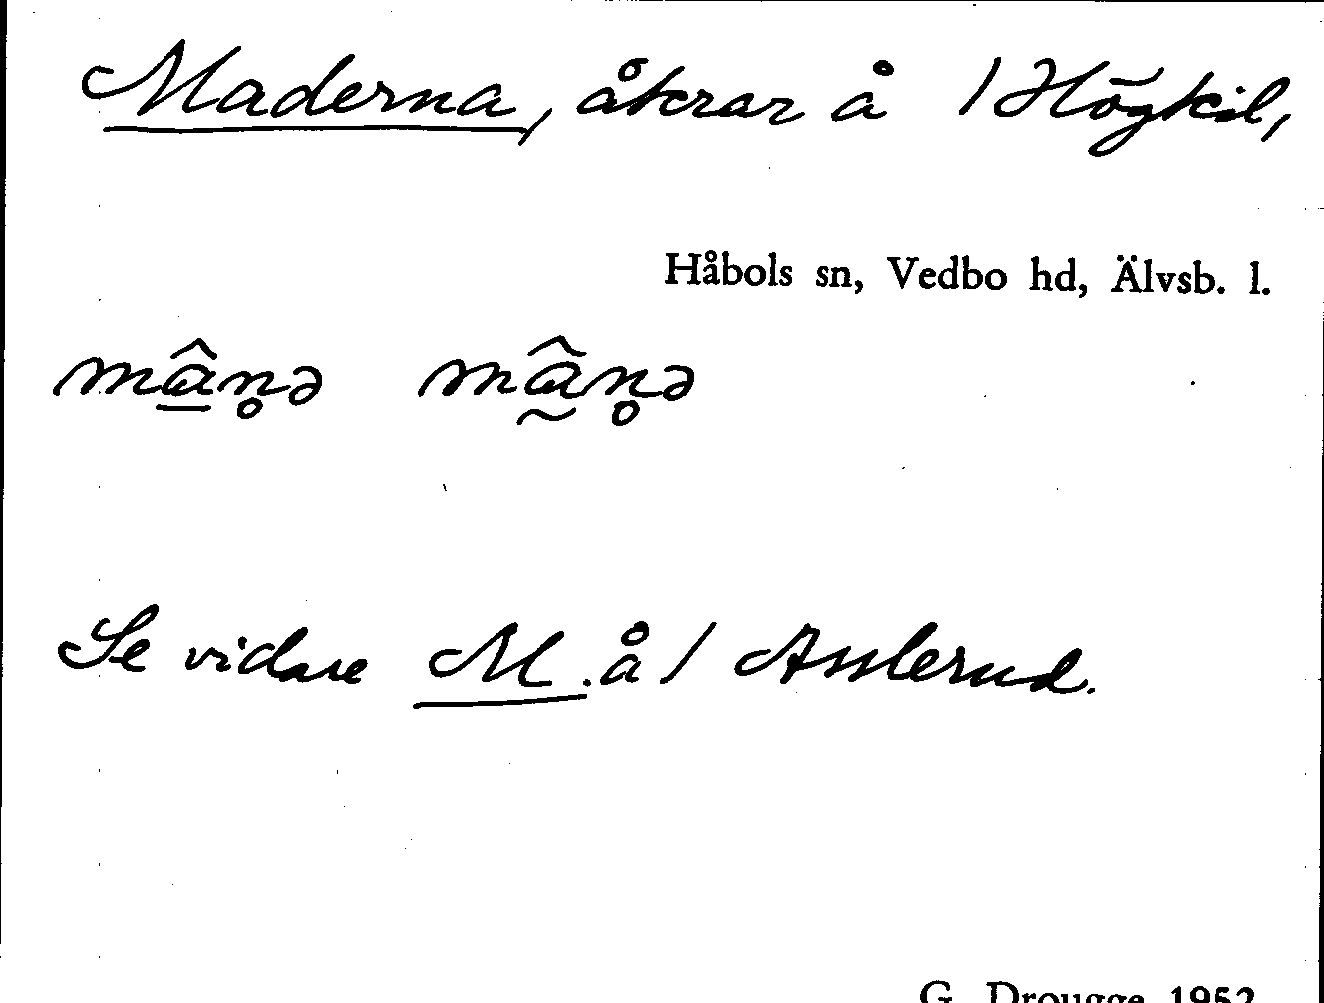 Maderna, åkrar å 1 Högkil,
Håbols sn, Vedbo hd, Älvsb. l.
mâ̱n̥ə mâ̰n̥ə
Se vidare M. å 1 Asslerud.
G. Drougge 1952